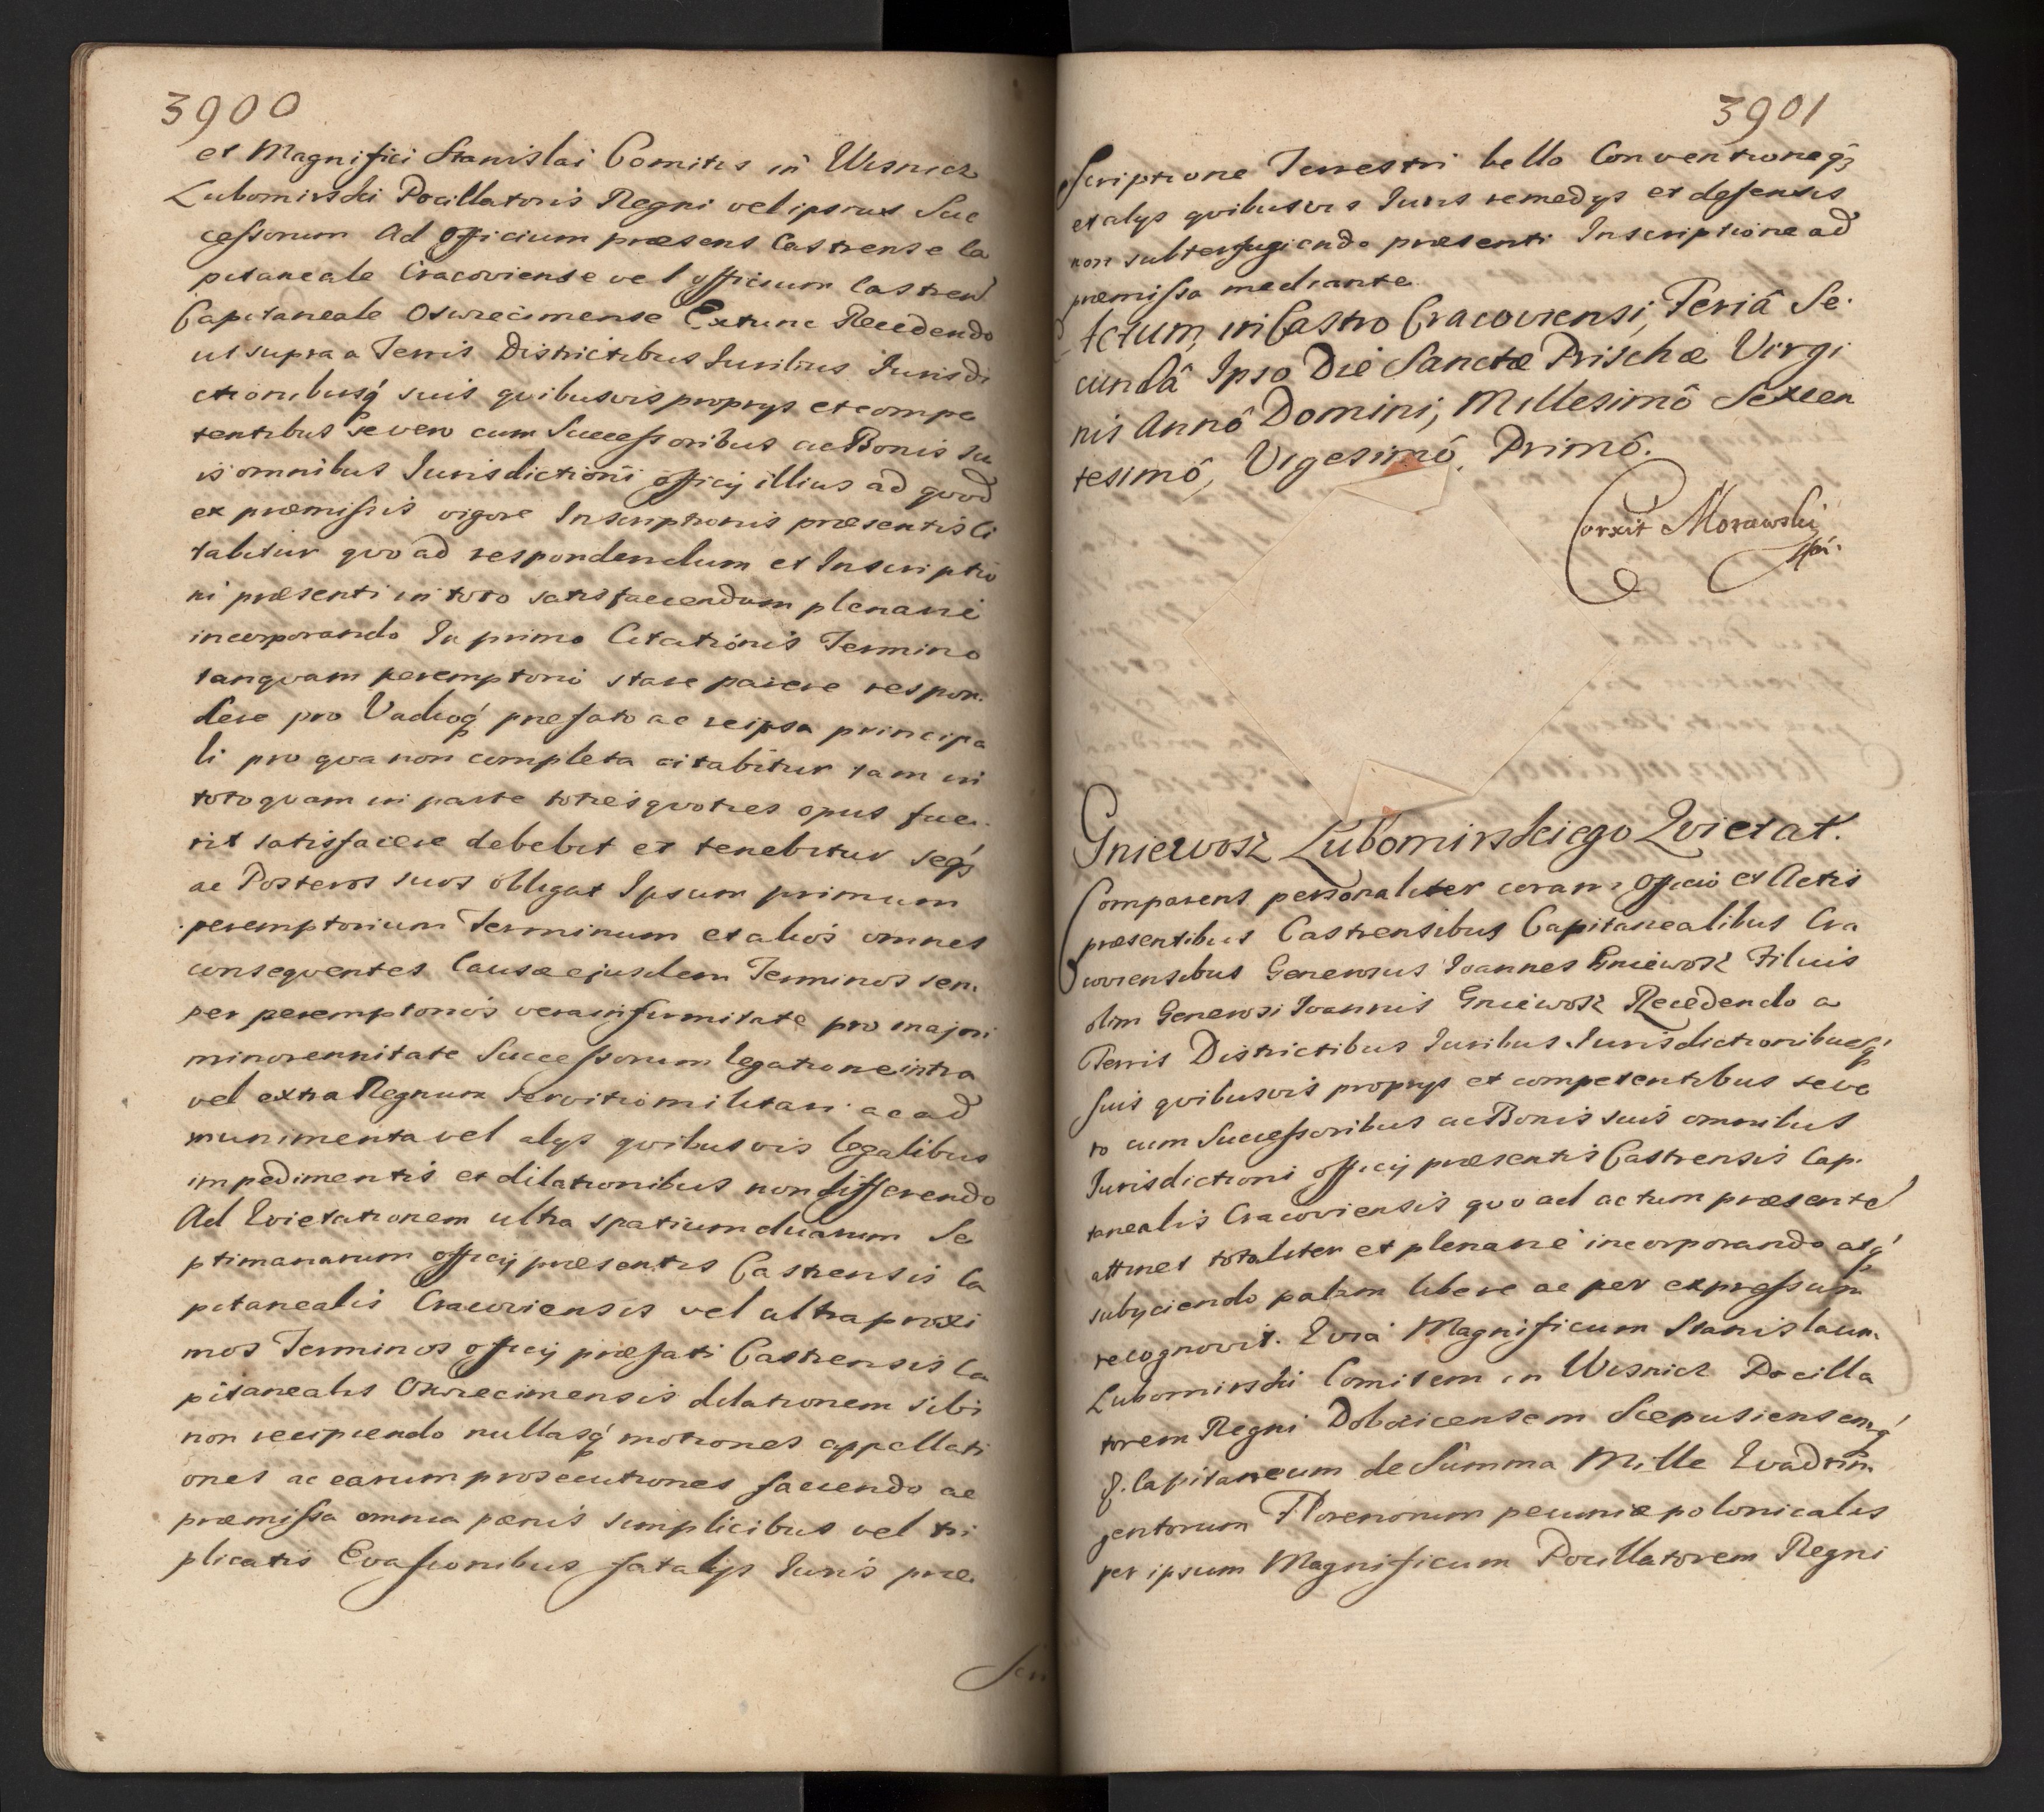 3900
et Magnifici Stanislai Comitis in Wisnicz
Lubomirski Pocillatoris Regni vel ipsius Suc
cessorum Ad Officium præsens Castrense Ca
pitaneale Cracoviense vel officium Castren
Capitaneale Oswiecimense Extunc Recedendo
ut supra a Terris Districtibus Juribus Jurisdi
ctionibusq́ suis quibusvis proprys et compe
tentibus Se vero cum Successoribus ac Bonis su
is omnibus Jurisdictioni officij illius ad quod
ex præmissis vigore Inscriptionis præsentis Ci
tabitur quo ad respondendum et Inscriptio
ni præsenti in toto satisfaciendum plenarie
incorporando In primo Citationis Termino
tanquam peremptorio stare parere respon.
dere pro Vadioq́ præfato ac reipsa principa
li pro qua non completa citabitur tam in
toto quam in parte toties quoties opus fue.
rit satisfacere debebit et tenebitur seq́
ac Posteros suos obligat Ipsum primum
peremptorium Terminum et alios omnes
consequentes Causæ ejusdem Terminos sem.
per peremptorios vera infirmitate pro majori
minorennitate Successorum legatione intra
vel extra Regnum servitio militari ac ad
munimenta vel alys quibusvis legalibus
impedimentis et dilationibus non differendo
Ad Quietationem ultra spatium duarum Se
ptimanarum officij præsentis Castrensis Ca
pitanealis Cracoviensis vel ultra proxi
mos Terminos officij præfati Castrensis Ca
pitanealis Oswiecimensis dilationem sibi
non recipiendo nullasq́ motiones appellati
ones ac earum prosecutiones faciendo ac
præmissa omnia pœnis simplicibus vel tri
plicatis Evasionibus fatalijs Juris præ
Scri
3901
scriptione Terrestri bello Conventioneq́
et alys quibusvis Juris remedys et defensis
non subterfugiendo præsenti Inscriptione ad
præmissa mediante
Actum, in Castro Cracoviensi, Feriâ Se.
cundâ Ipso Die Sanctæ Prischæ Virgi
nis Annô Domini, Millesimô Sexcen
tesimô, Vigesimô, Primô.
Corxit Morawski
mpr.
Gniewosz Lubomirskiego Quietat.
Comparens personaliter coram Officio et Actis
præsentibus Castrensibus Capitanealibus Cra
coviensibus Generosus Joannes Gniewosz Filius
olim Generosi Joannis Gniewosz Recedendo a
Terris Districtibus Juribus Jurisdictionibusq́
suis quibusvis proprys et competentibus seve
ro cum Successoribus ac Bonis suis omnibus
Jurisdictioni officij præsentis Castrensis Cap.
tanealis Cracoviensis quo ad actum præsente
attinet totaliter et plenarie incorporando atq́
subyciendo palam libere ac per expressum
recognovit. Quia Magnificum Stanislaum
Lubomirski Comitem in Wisnicz Pocilla
torem Regni Dobczicensem Scepusiensemq́
&. Capitaneum de Summa Mille Quadrin
gentorum Florenorum pecuniæ polonicalis
per ipsum Magnificum Pocillatorem Regni